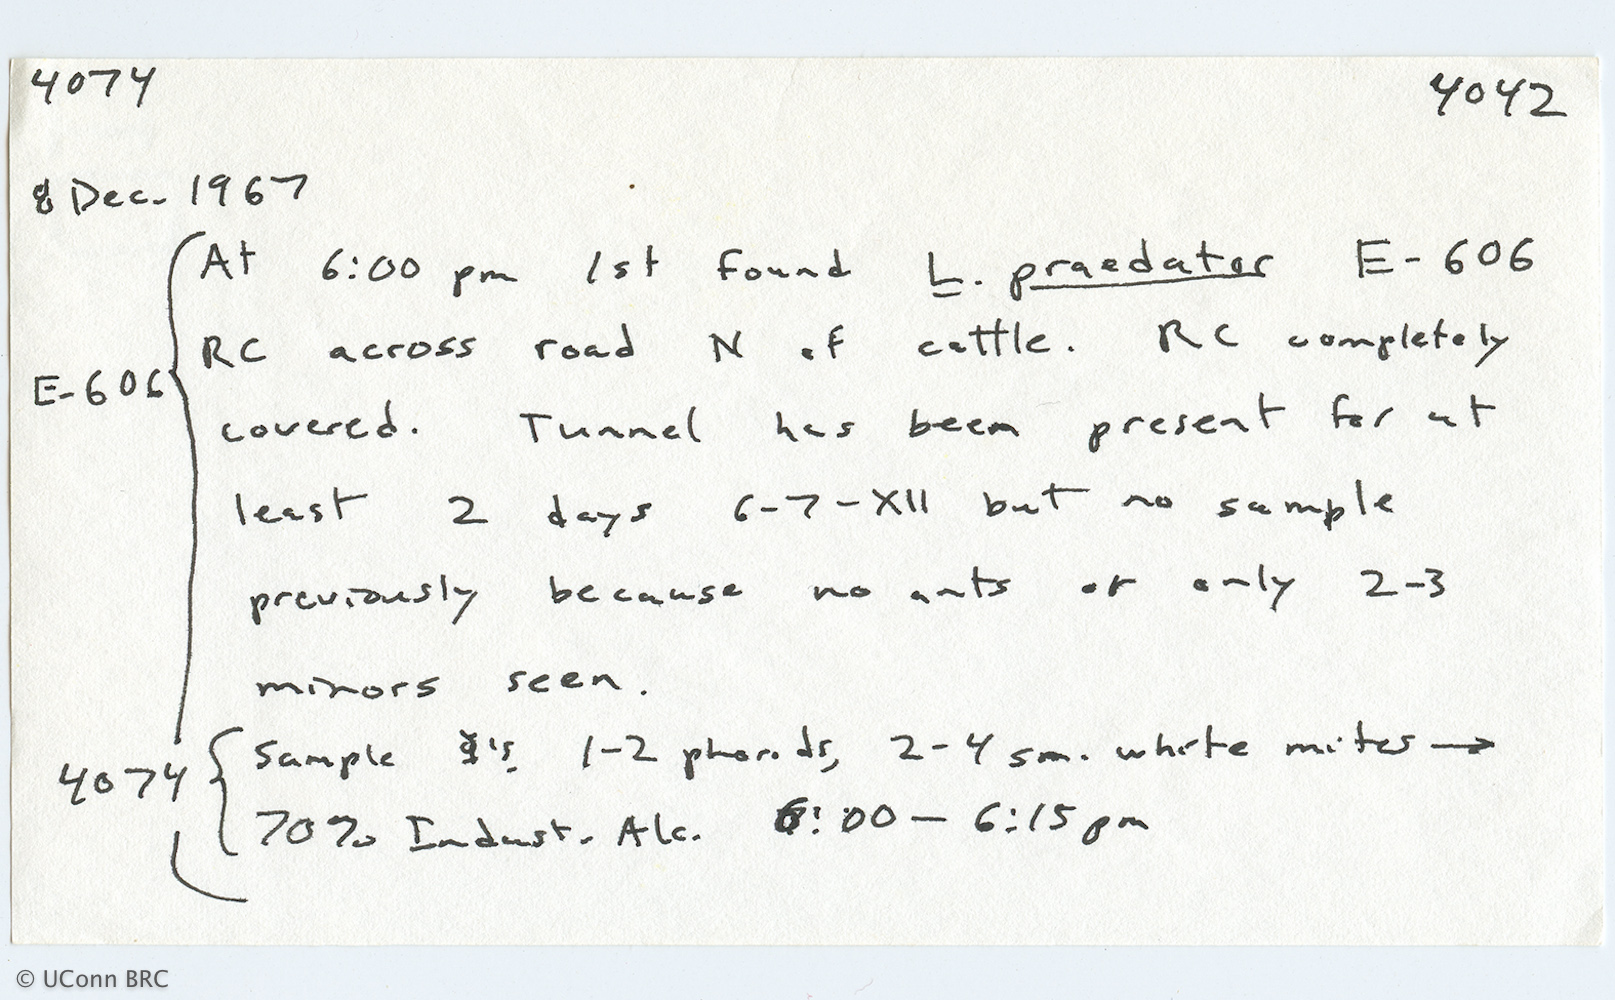 4074 4042
8 Dec. 1967
At 6:00 pm 1st found L. praedator E-606
RC across road N of cattle. RC completely
E-606
covered. Tunnel has been present for at
least 2 days 6-7-XII but no sample
previously because no ants or only 2-3
minors seen.
4074
Sample ☿'s, 1-2 phorids, 2-4 sm. white mites →
70% Indust. Alc. 6:00 — 6:15 pm
© UConn BRC